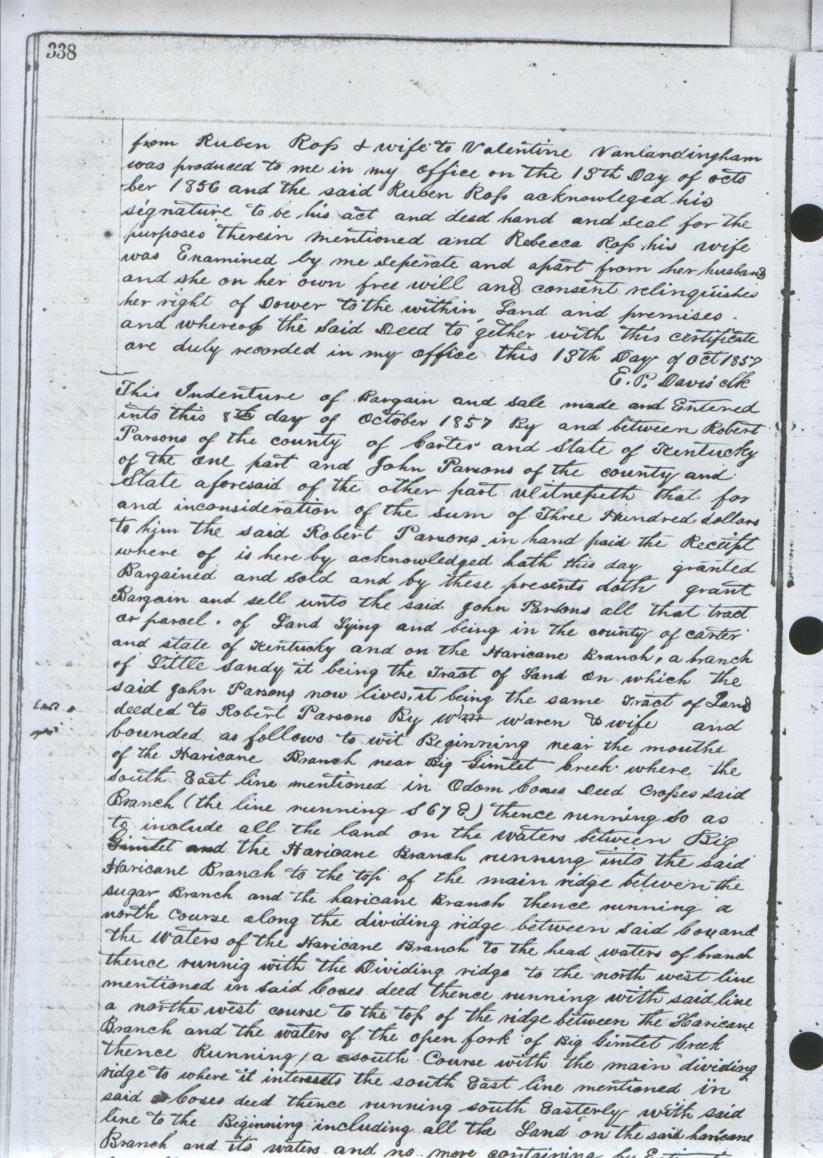 338
from Ruben Ross & wife to Valentine Vanlandingham
was produced to me in my office on the 13th Day of octo
ber 1856 and the said Ruben Ross acknowleged his
signature to be his act and deed hand and seal for the
purposes therein mentioned and Rebecca Ross his wife
was Examined by me seperate and apart from her husband
and she on her own free will and consent relinquishes
her right of Dower to the within Land and premises.
and whereof the said Deed to gether with this certificate
are duly recorded in my office this 13th Day of oct 1857
E. P. Davis clk
This Indenture of Bargain and sale made and Entered
into this 8th day of October 1857 By and between Robert
Parsons of the county of Carter and State of Kentucky
of the one part and John Parsons of the county and
State aforesaid of the other part Witnesseth that for
and inconsideration of the sum of Three Hundred dollars
to him the said Robert Parsons in hand paid the Receipt
where of is here by acknowledged hath this day granted
Bargained and sold and by these presents doth grant
Bargain and sell unto the said John Parsons all that tract
or parcel. of Land Lying and being in the county of carter
and state of Kentucky and on the Haricane Branch, a branch
of Little Sandy it being the Tract of Land on which the
said John Parsons now lives, it being the same Tract of Land
deeded to Robert Parsons By Wm waren & wife and
bounded as follows to wit Beginning near the mouths
of the Haricane Branch near Big Gimlet Creek where the
South East line mentioned in Odom Coxes Deed Crosses said
Branch (the line running S 67 E) thence running So as
to include all the land on the waters between Big
Gimlet and the Haricane Branch running into the said
Haricane Branch to the top of the main ridge between the
sugar Branch and the haricane Branch thence running a
north Course along the dividing ridge between said Cox and
the Waters of the Haricane Branch to the head waters of branch
thence runnig with the Dividing ridge to the north west line
mentioned in said Coxes deed thence running with said line
a northe west course to the top of the ridge between the Haricane
Branch and the waters of the open fork of Big Gimlet Creek
thence Running, a south Course with the main dividing
ridge to where it intersects the south East line mentioned in
said Coxes deed thence running south Easterly with said
line to the Beginning including all the Land on the said haricane
Branch and its waters and no more containing by